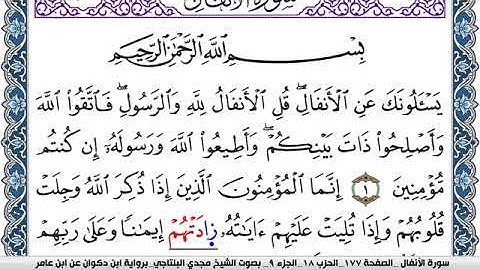 سورة الأنفال
بِسْمِ اللَّهِ الرَّحْمَٰنِ الرَّحِيمِ
يَسْـَٔلُونَكَ عَنِ الْأَنفَالِ ۖ قُلِ الْأَنفَالُ لِلَّهِ وَالرَّسُولِ ۖ فَاتَّقُوا اللَّهَ
وَأَصْلِحُوا ذَاتَ بَيْنِكُمْ ۖ وَأَطِيعُوا اللَّهَ وَرَسُولَهُۥ إِن كُنتُم
مُّؤْمِنِينَ ١ إِنَّمَا الْمُؤْمِنُونَ الَّذِينَ إِذَا ذُكِرَ اللَّهُ وَجِلَتْ
قُلُوبُهُمْ وَإِذَا تُلِيَتْ عَلَيْهِمْ ءَايَٰتُهُۥ زَادَتْهُمْ إِيمَٰنًا وَعَلَىٰ رَبِّهِمْ
سورة الأنفال _الصفحة ١٧٧_ الحزب ١٨_ الجزء ٩_ بصوت الشيخ مجدي البلتاجي_برواية ابن ذكوان عن ابن عامر